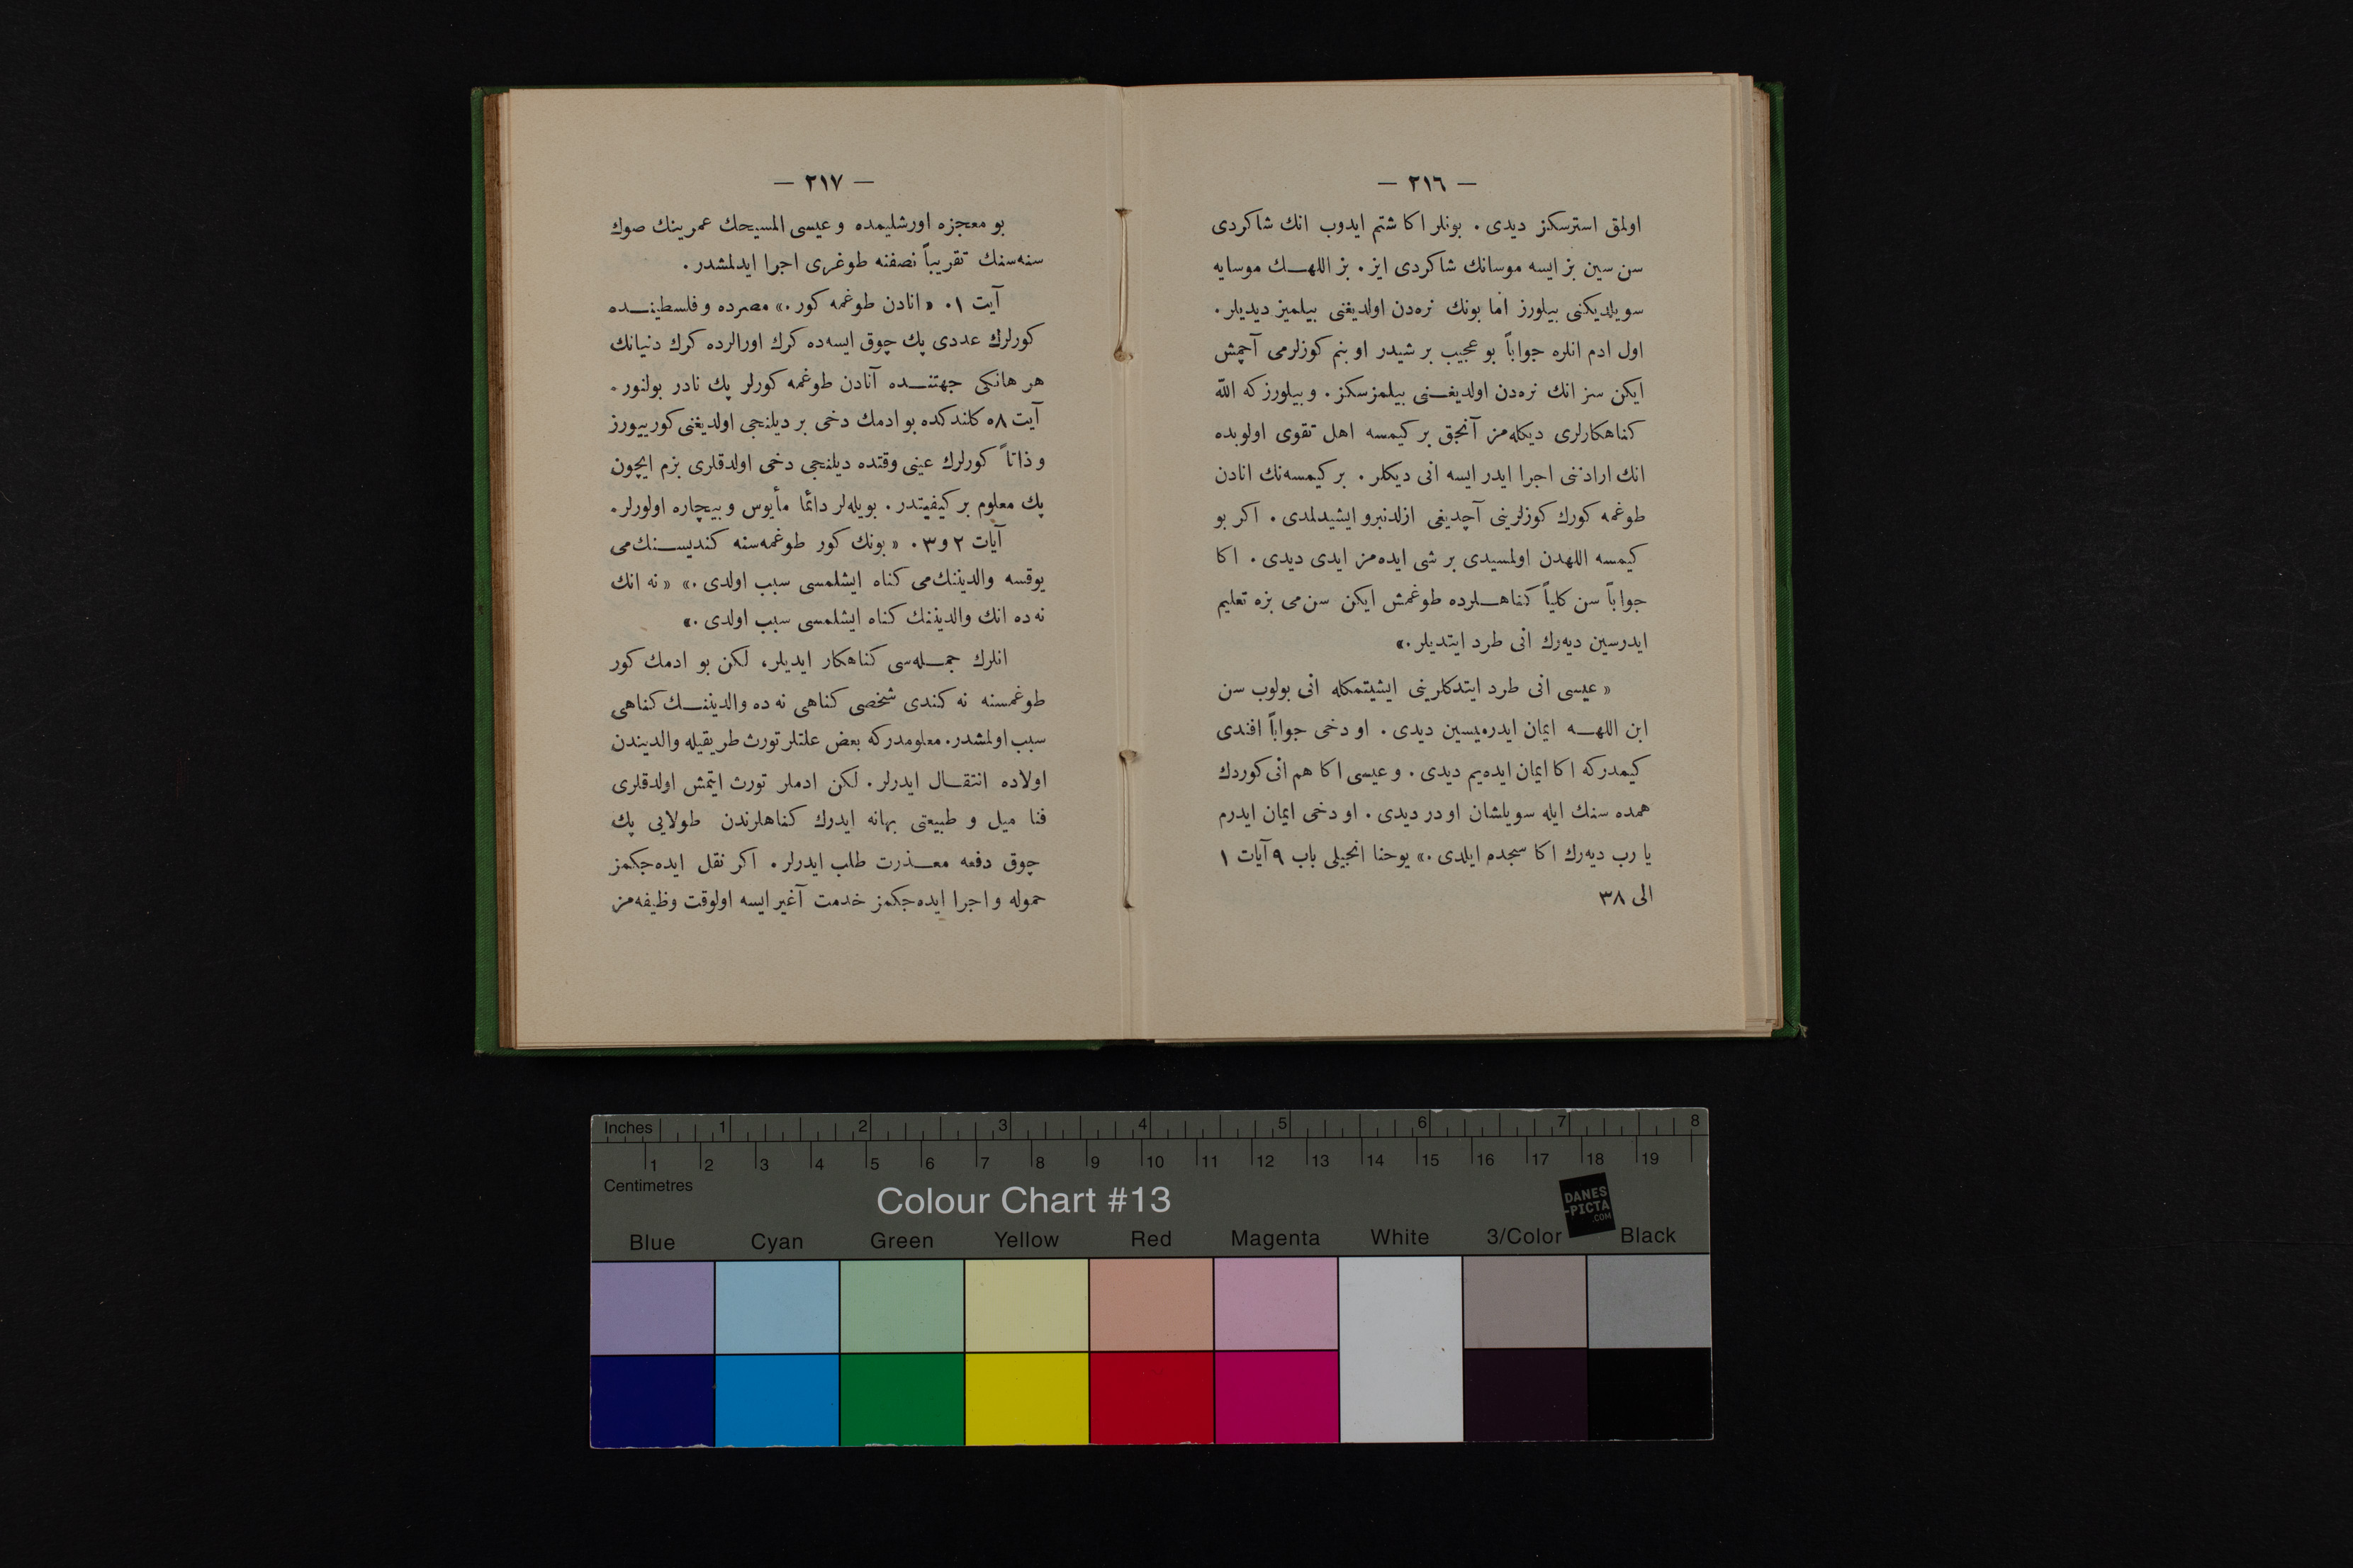 — ٢١٦ —
اولمق استرسكز ديدی . بونلر اكا شتم ايدوب انك شاكردی
سن سين بز ايسه موسانك شاكردی ايز . بز اللهـك موسايه
سويلديكنی بيلورز اما بونك نره‌دن اولديغنی بيلميز ديديلر .
اول ادم انلره جواباً بو عجيب بر شيدر او بنم كوزلرمی آچمش
ايكن سز انك نره‌دن اولديغـنی بيلمزسكز . و بيلورز كه الله
كناهكارلری ديكله‌مز آنجق بر كيمسه اهل تقوی اولوبده
انك ارادتنی اجرا ايدر ايسه انی ديكلر . بر كيمسه‌نك انادن
طوغمه كورك كوزلرينی آچديغی ازلدنبرو ايشيدلمدی . اكر بو
كيمسه اللهدن اولمسيدی بر شی ايده‌مز ايدی ديدی . اكا
جواباً سن كلياً كناهـلرده طوغمش ايكن سن‌می بزه تعليم
ايدرسين ديه‌رك انی طرد ايتديلر .»
« عيسی انی طرد ايتدكلرينی ايشيتمكله انی بولوب سن
ابن اللهـه ايمان ايدرميسين ديدی . او دخی جواباً افندی
كيمدركه اكا ايمان ايده‌يم ديدی . و عيسی اكا هم انی كوردك
همده سنك ايله سويلشان او در ديدی . او دخی ايمان ايدرم
يا رب ديه‌رك اكا سجدم ايلدی .» يوحنا انجيلی باب ٩ آيات ١
الی ٣٨
— ٢١٧ —
بو معجزه اورشليمده و عيسی المسيحك عمرينك صوك
سنه‌سنك تقريباً نصفنه طوغری اجرا ايدلمشدر .
آيت ١ . « انادن طوغمه كور .» مصرده و فلسطينـده
كورلرك عددی پك چوق ايسه‌ده كرك اورالرده كرك دنيانك
هر هانكی جهتنـده آنادن طوغمه كورلر پك نادر بولنور .
آيت ٨ه كلندكده بو ادمك دخی بر ديلنجی اولديغنی كورييورز
و ذاتاً كورلرك عينی وقتده ديلنجی دخی اولدقلری بزم ايچون
پك معلوم بر كيفيتدر . بويله‌لر دائما مأيوس و بيچاره اولورلر .
آيات ٢ و ٣ . « بونك كور طوغمه‌سنه كنديسـنك‌می
يوقسه والديننك‌می كناه ايشلمسی سبب اولدی .» « نه انك
نه ده انك والديننك كناه ايشلمسی سبب اولدی .»
انلرك جمـله‌سی كناهكار ايديلر، لكن بو ادمك كور
طوغمسنه نه كندی شخصی كناهی نه ده والديننـك كناهی
سبب اولمشدر . معلومدركه بعض علتلر تورث طريقيله والديندن
اولاده انتقـال ايدرلر . لكن ادملر تورث ايتمش اولدقلری
فنا ميل و طبيعتی بهانه ايدرك كناهلرندن طولايی پك
چوق دفعه معـذرت طلب ايدرلر . اكر نقل ايده‌جكمز
حموله و اجرا ايده‌جكمز خدمت آغير ايسه اولوقت وظيفه‌مز
Inches 1 2 3 4 5 6 7 8
1 2 3 4 5 6 7 8 9 10 11 12 13 14 15 16 17 18 19
Centimetres
Colour Chart #13
DANES
-PICTA
.COM
Blue Cyan Green Yellow Red Magenta White 3/Color Black